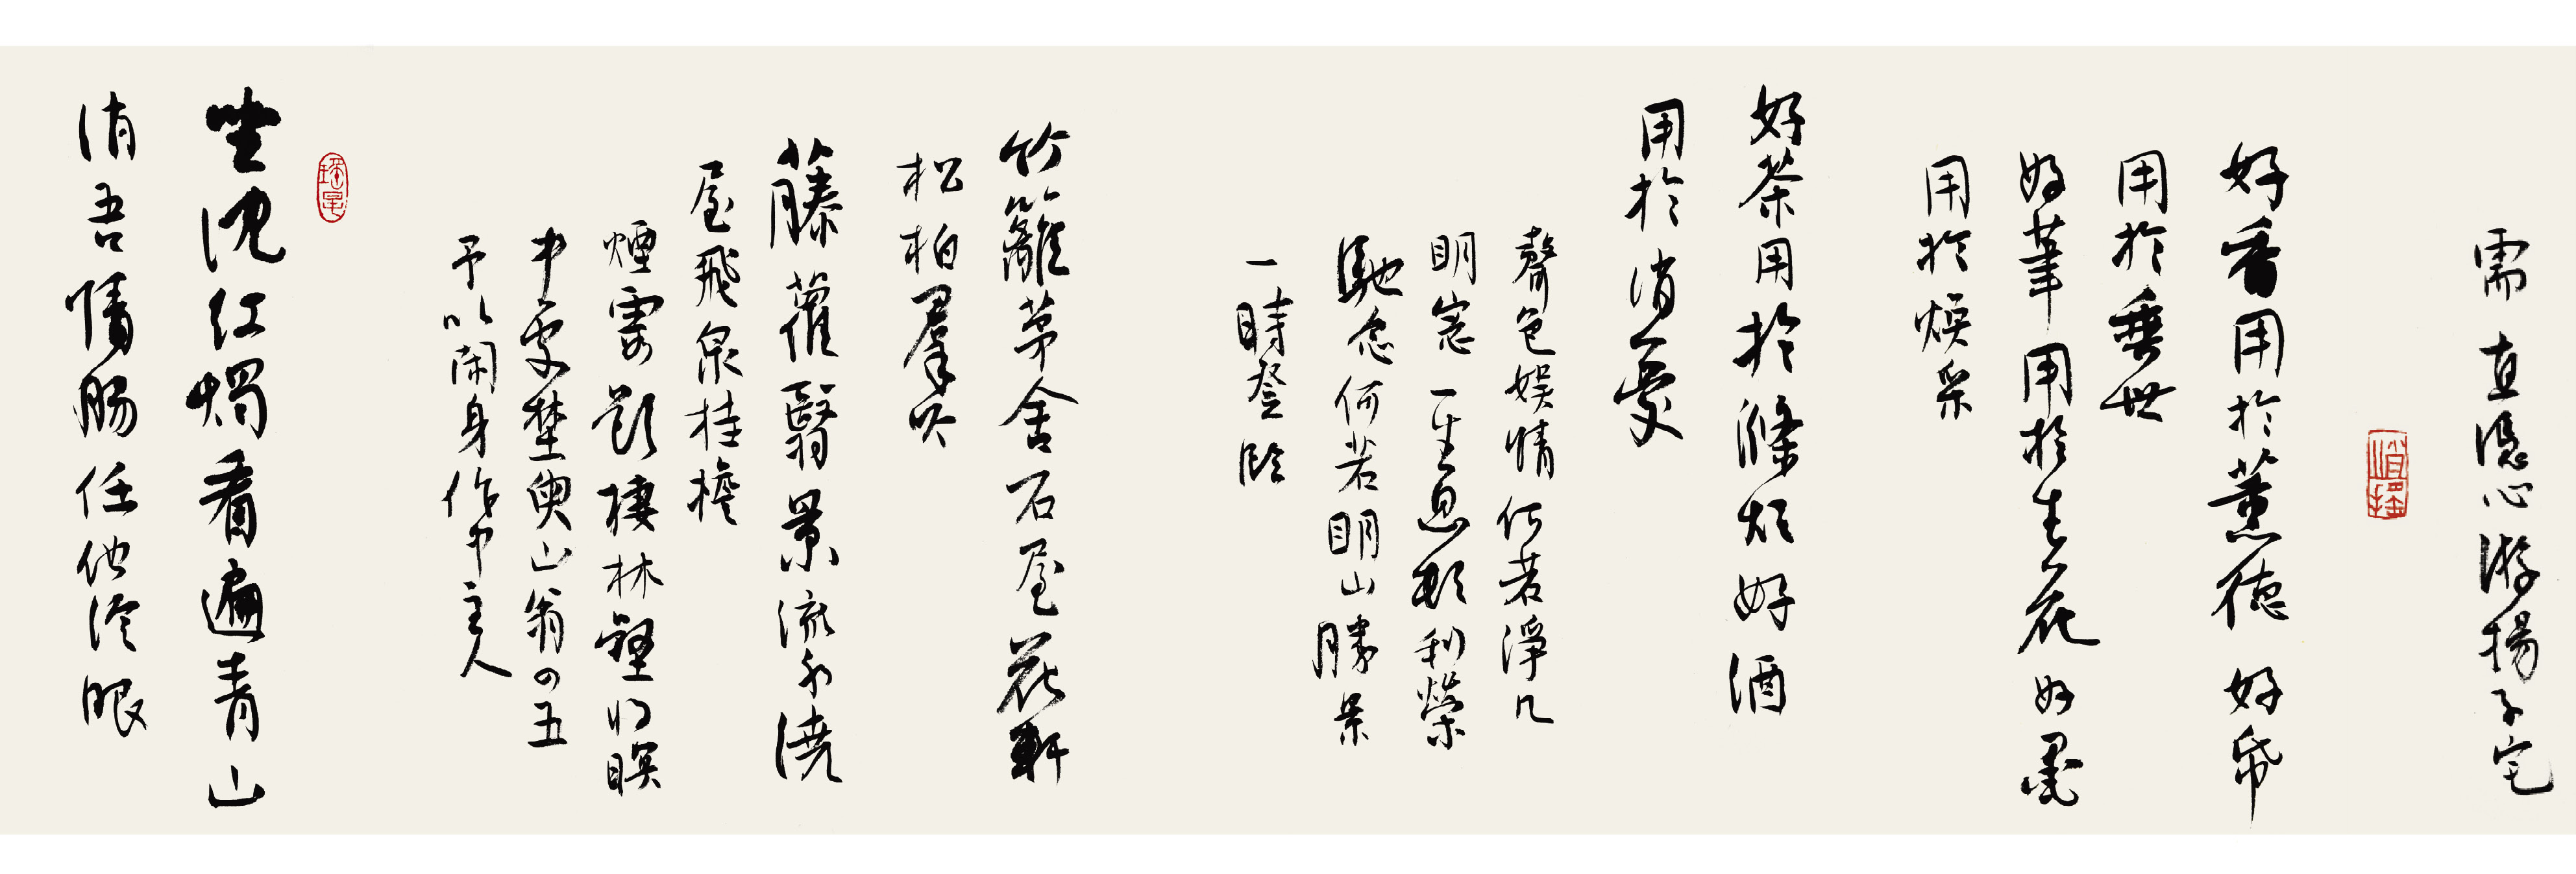 需直隱心游揚子宅
好香用於薰德好帋
用於垂世
好筆用於生花好墨
用於煥采
好茶用於滌煩好酒
用於消憂
聲色娛情何若淨几
明窓一生息頃利榮
馳念何若明山勝景
一時登臨
竹籬茅舍石屋花軒
松柏羣吟
藤蘿翳景流水澆
屋飛泉挂檐
煙霞欲棲林壑將暝
中處埜叟山翁四五
予以閑身作中主人
坐沈红燭看遍青山
消吾情腸任他冷眼